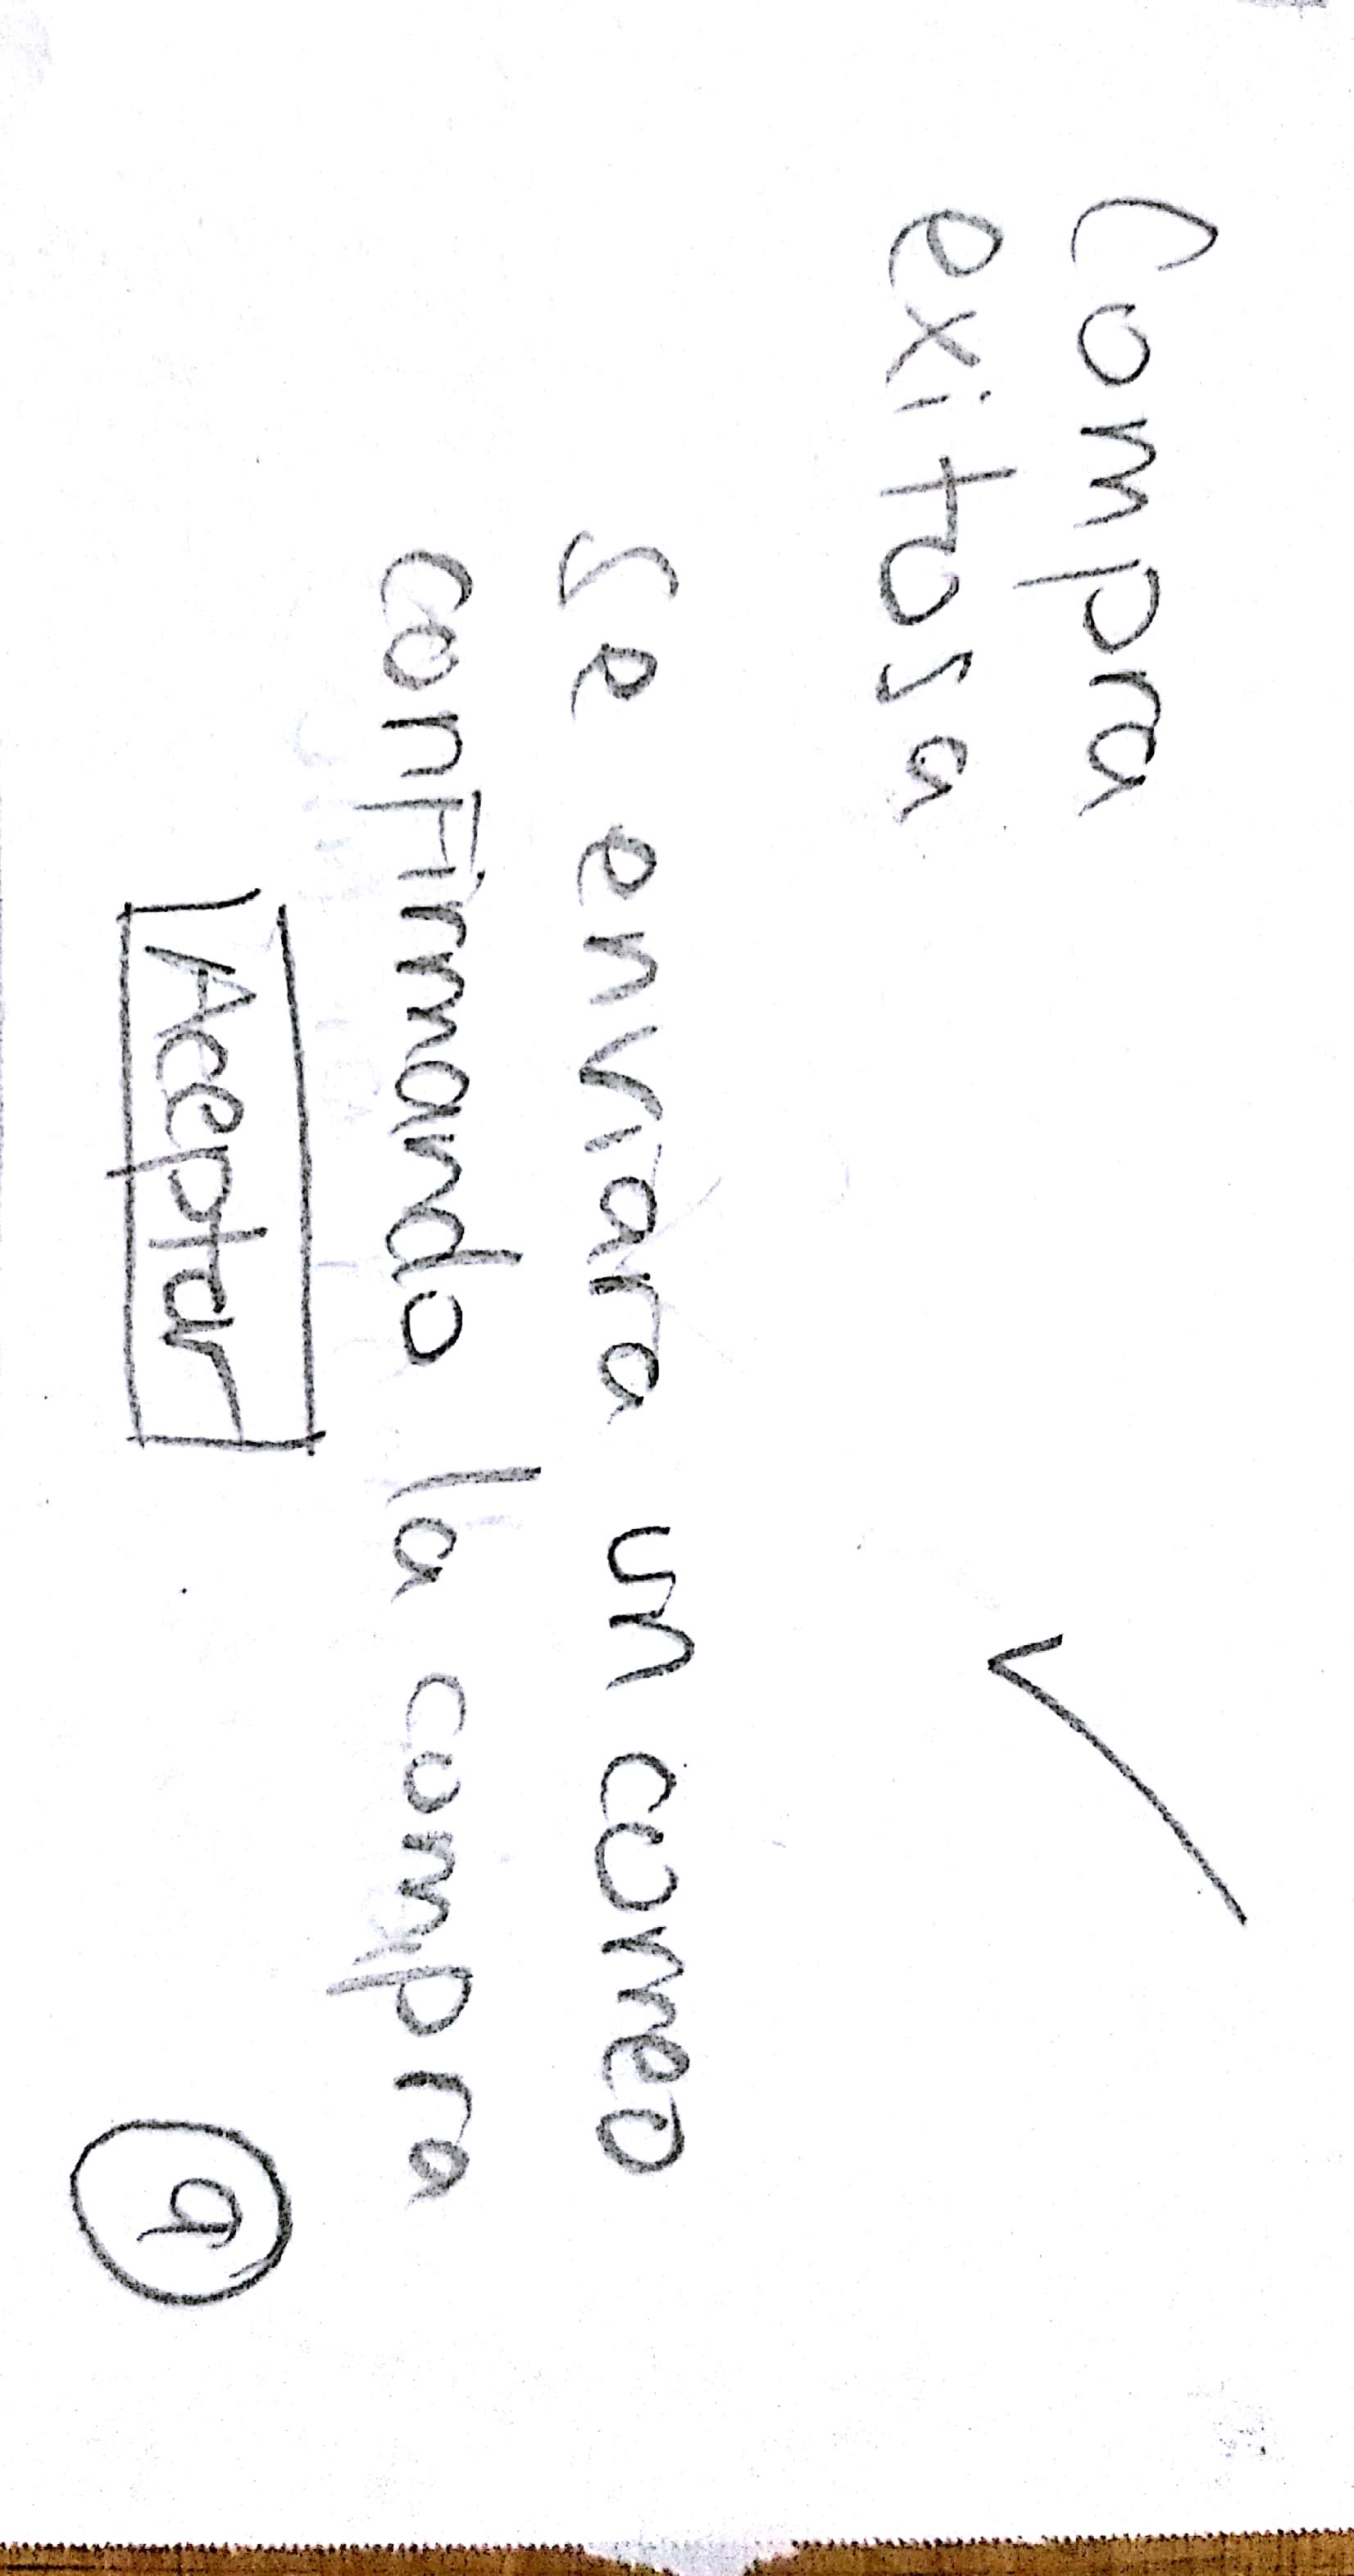 Compra
exitosa
✓
Se enviara un correo
confirmando la compra
Aceptar
9